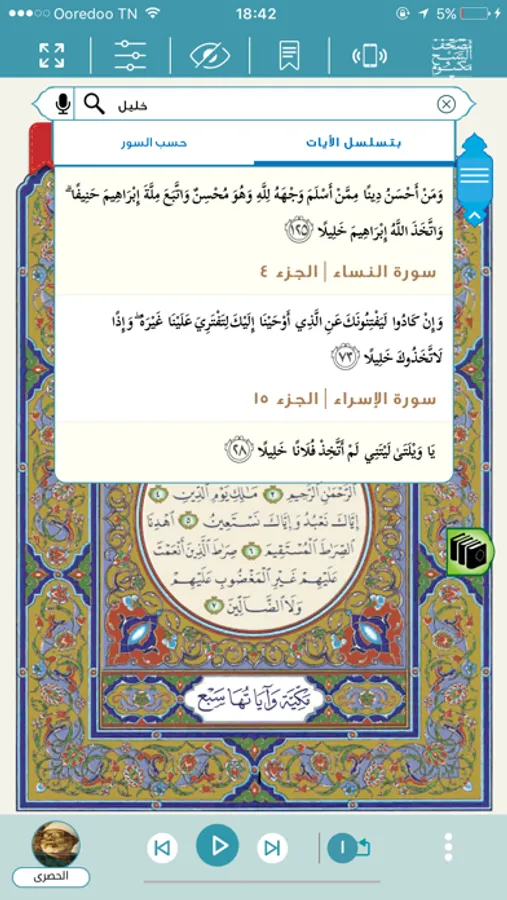 Ooredoo TN 18:42 5%
مصحف الشيخ مكتوم
خليل
بتسلسل الأيات
حسب السور
وَمَنْ أَحْسَنُ دِينًا مِمَّنْ أَسْلَمَ وَجْهَهُ لِلَّهِ وَهُوَ مُحْسِنٌ وَاتَّبَعَ مِلَّةَ إِبْرَاهِيمَ حَنِيفًا ۗ
وَاتَّخَذَ اللَّهُ إِبْرَاهِيمَ خَلِيلًا ١٢٥
سورة النساء | الجزء ٤
وَإِنْ كَادُوا لَيَفْتِنُونَكَ عَنِ الَّذِي أَوْحَيْنَا إِلَيْكَ لِتَفْتَرِيَ عَلَيْنَا غَيْرَهُ ۖ وَإِذًا
لَاتَّخَذُوكَ خَلِيلًا ٧٣
سورة الإسراء | الجزء ١٥
يَا وَيْلَتَىٰ لَيْتَنِي لَمْ أَتَّخِذْ فُلَانًا خَلِيلًا ٢٨
الرَّحْمَٰنِ الرَّحِيمِ ٣ مَٰلِكِ يَوْمِ الدِّينِ ٤
إِيَّاكَ نَعْبُدُ وَإِيَّاكَ نَسْتَعِينُ ٥ اهْدِنَا
الصِّرَٰطَ الْمُسْتَقِيمَ ٦ صِرَٰطَ الَّذِينَ أَنْعَمْتَ
عَلَيْهِمْ غَيْرِ الْمَغْضُوبِ عَلَيْهِمْ
وَلَا الضَّالِّينَ ٧
مَكِّيَّة وَآيَاتُهَا سَبْع
الحصرى